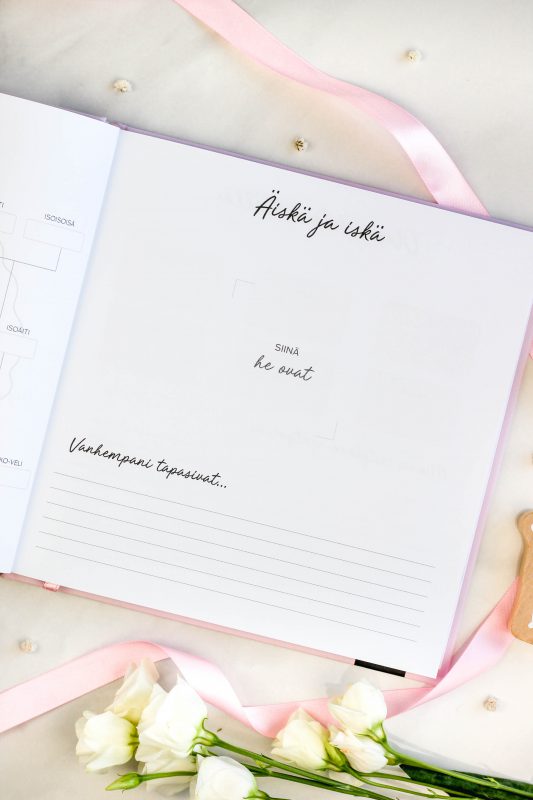 ISOISOISÄ
ISOÄITI
KO-VELI
Äiskä ja iskä
SIINÄ
he ovat
Vanhempani tapasivat...